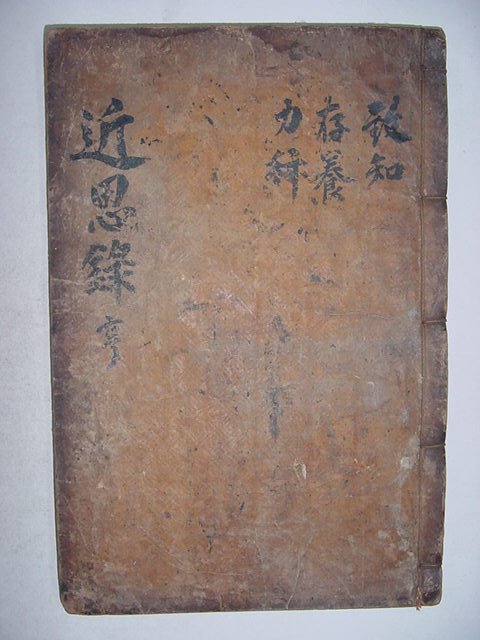 致知
存養
力
近思錄 亨